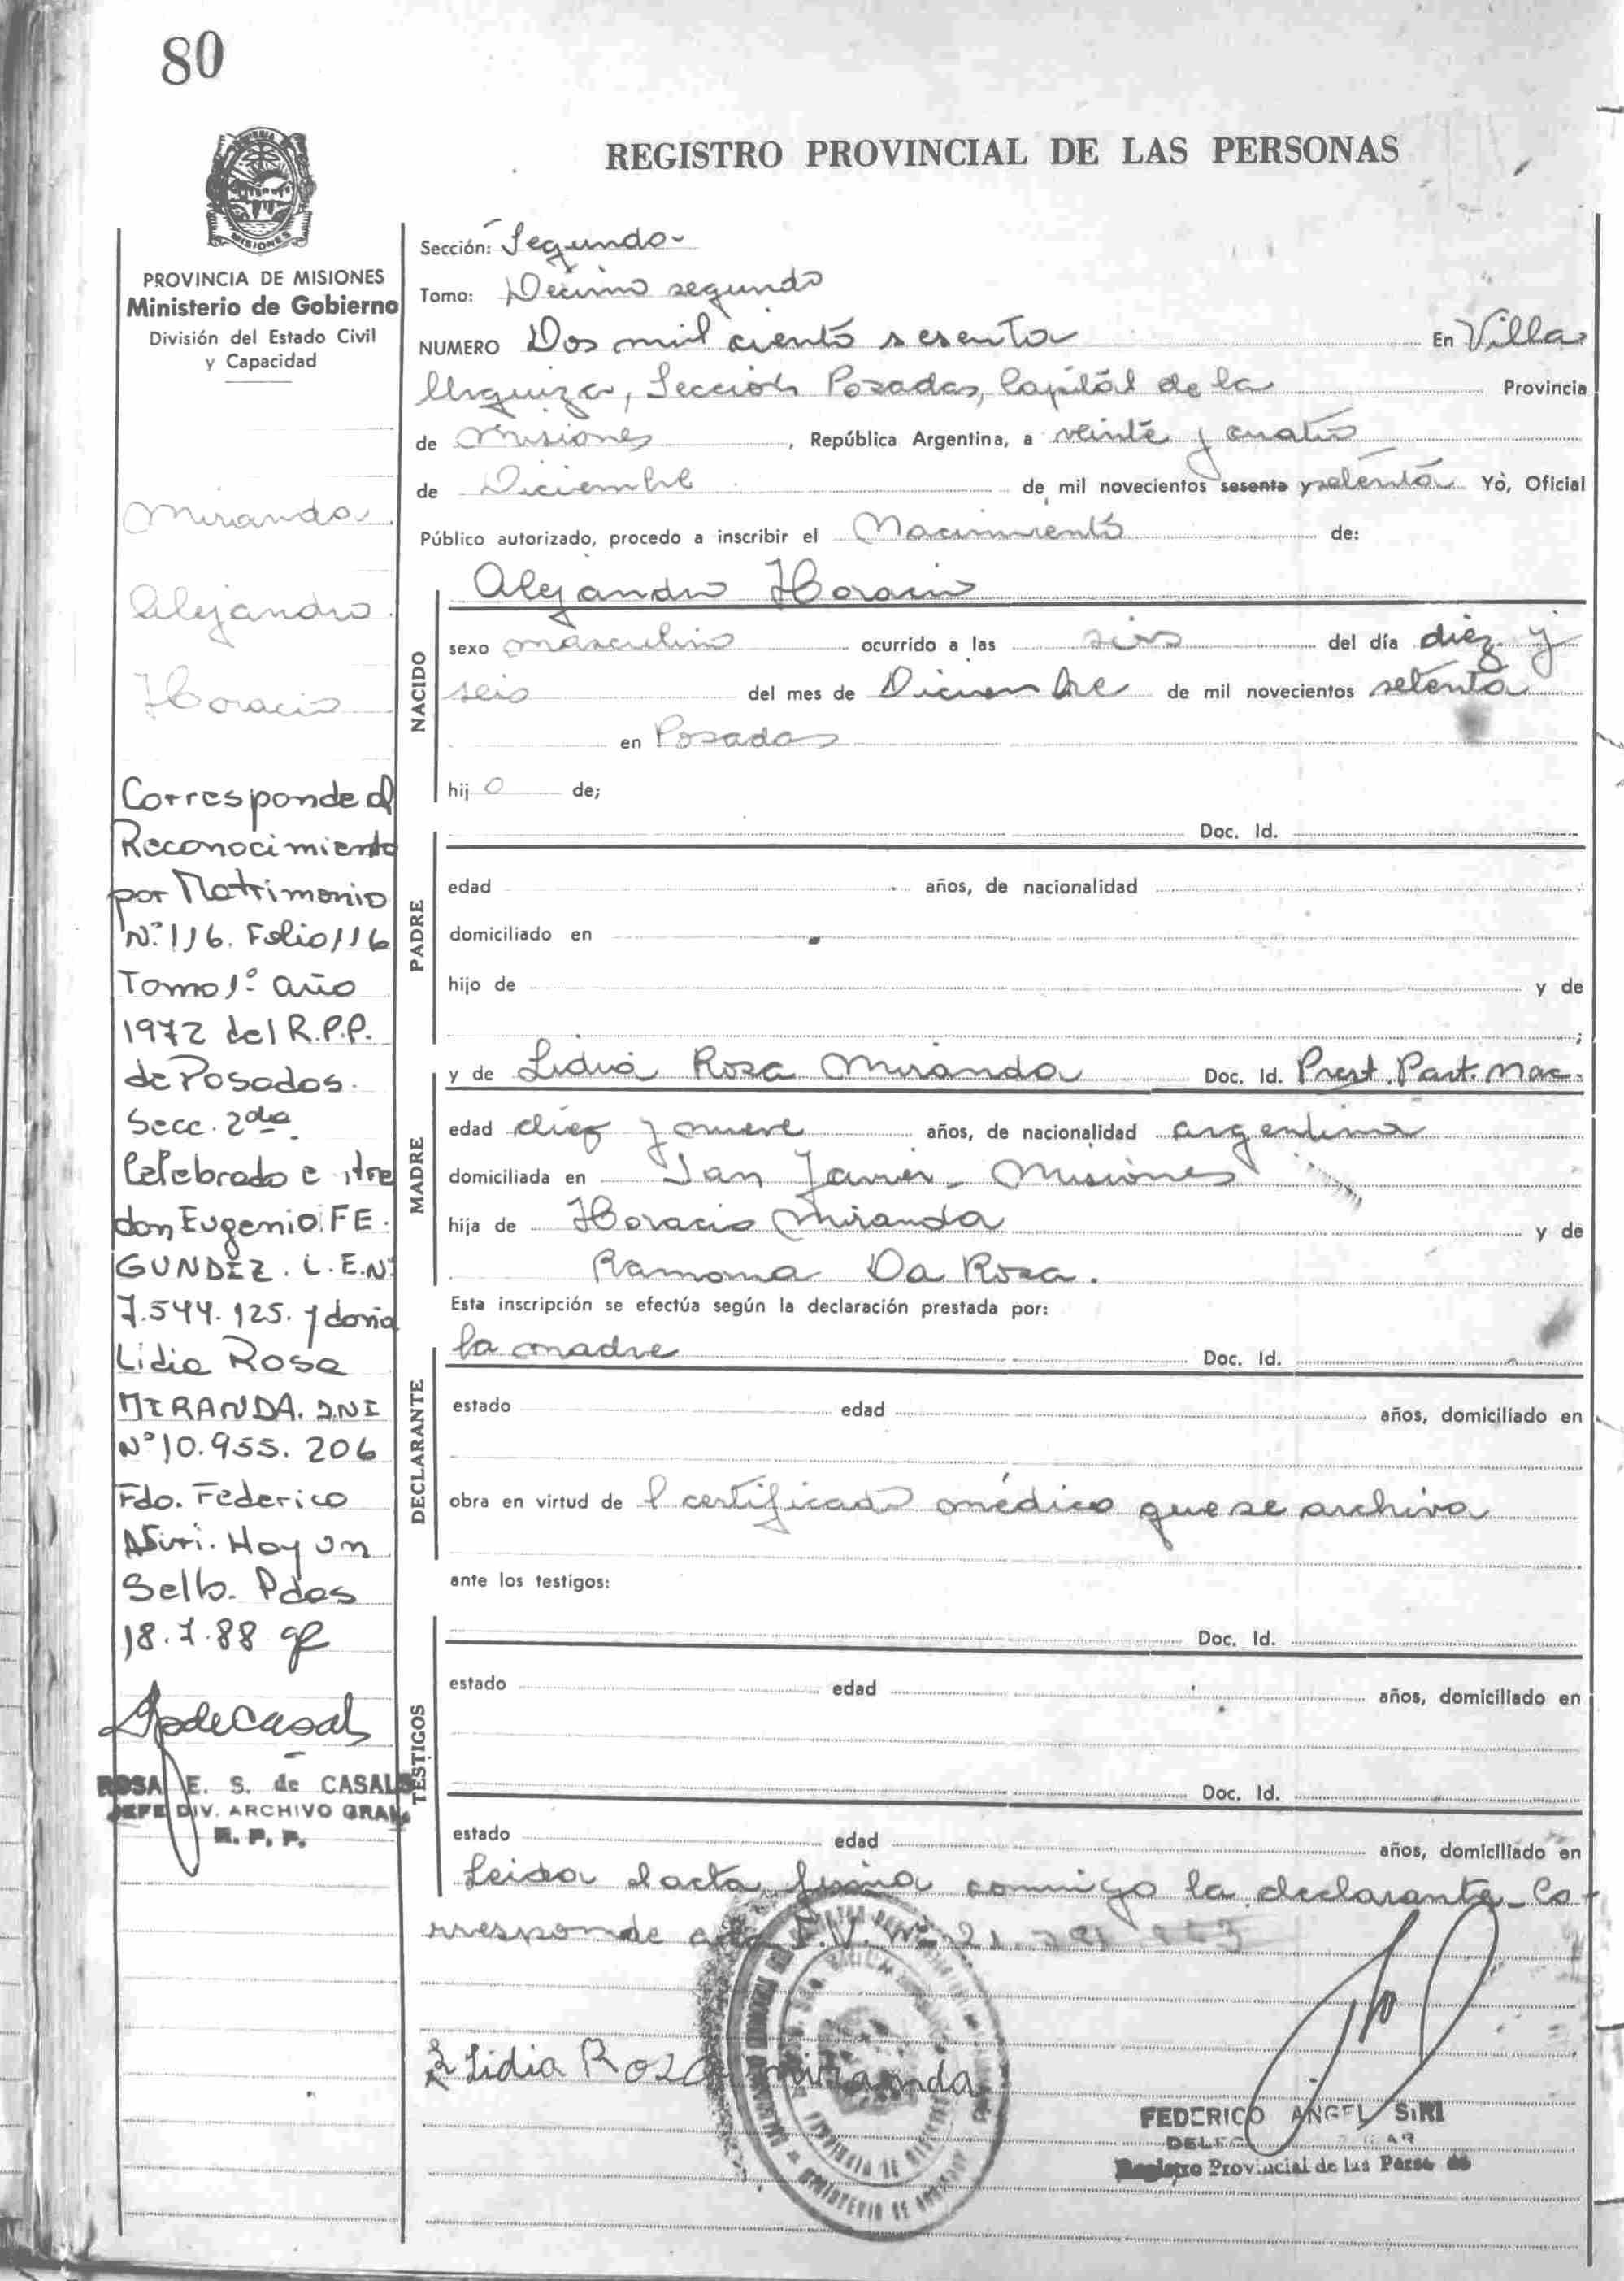 80
REGISTRO PROVINCIAL DE LAS PERSONAS
MISIONES
PROVINCIA DE MISIONES
Ministerio de Gobierno
División del Estado Civil
y Capacidad
Miranda
Alejandro
Horacio
Corresponde al
Reconocimiento
por Matrimonio
N° 116. Folio 116
Tomo 1° año
1972 del R.P.P.
de Posadas.
Secc. 2da
Celebrado entre
don Eugenio FE-
GUNDEZ. L.E.N°
7.544.125. y doña
Lidia Rosa
MIRANDA. DNI
N° 10.955.206
Fdo. Federico
Siri. Hay un
Sello. Pdas
18.7.88
ROSA E. S. de CASALS
JEFE DIV. ARCHIVO GRAL.
R. P. P.
Sección: Segunda
Tomo: Décimo segundo
NUMERO Dos mil ciento sesenta En Villa
Urquiza, Sección Posadas, Capital de la Provincia
de Misiones, República Argentina, a veinte y cuatro
de Diciembre de mil novecientos sesenta y setenta Yo, Oficial
Público autorizado, procedo a inscribir el Nacimiento de:
NACIDO
Alejandro Horacio
sexo masculino ocurrido a las seis del día diez y
seis del mes de Diciembre de mil novecientos setenta
en Posadas
hijo de;
PADRE
Doc. Id.
edad años, de nacionalidad
domiciliado en
hijo de y de
;
MADRE
y de Lidia Rosa Miranda Doc. Id. Prest. Part. Nac.
edad diez y nueve años, de nacionalidad argentina
domiciliada en San Javier - Misiones
hija de Horacio Miranda y de
Ramona Da Rosa.
Esta inscripción se efectúa según la declaración prestada por:
DECLARANTE
la madre Doc. Id.
estado edad años, domiciliado en
obra en virtud del certificado médico que se archiva
ante los testigos:
TESTIGOS
Doc. Id.
estado edad años, domiciliado en
Doc. Id.
estado edad años, domiciliado en
Leida el acta, firma conmigo la declarante. Co-
rresponde a
Lidia Rosa Miranda
FEDERICO ANGEL SIRI
Registro Provincial de las